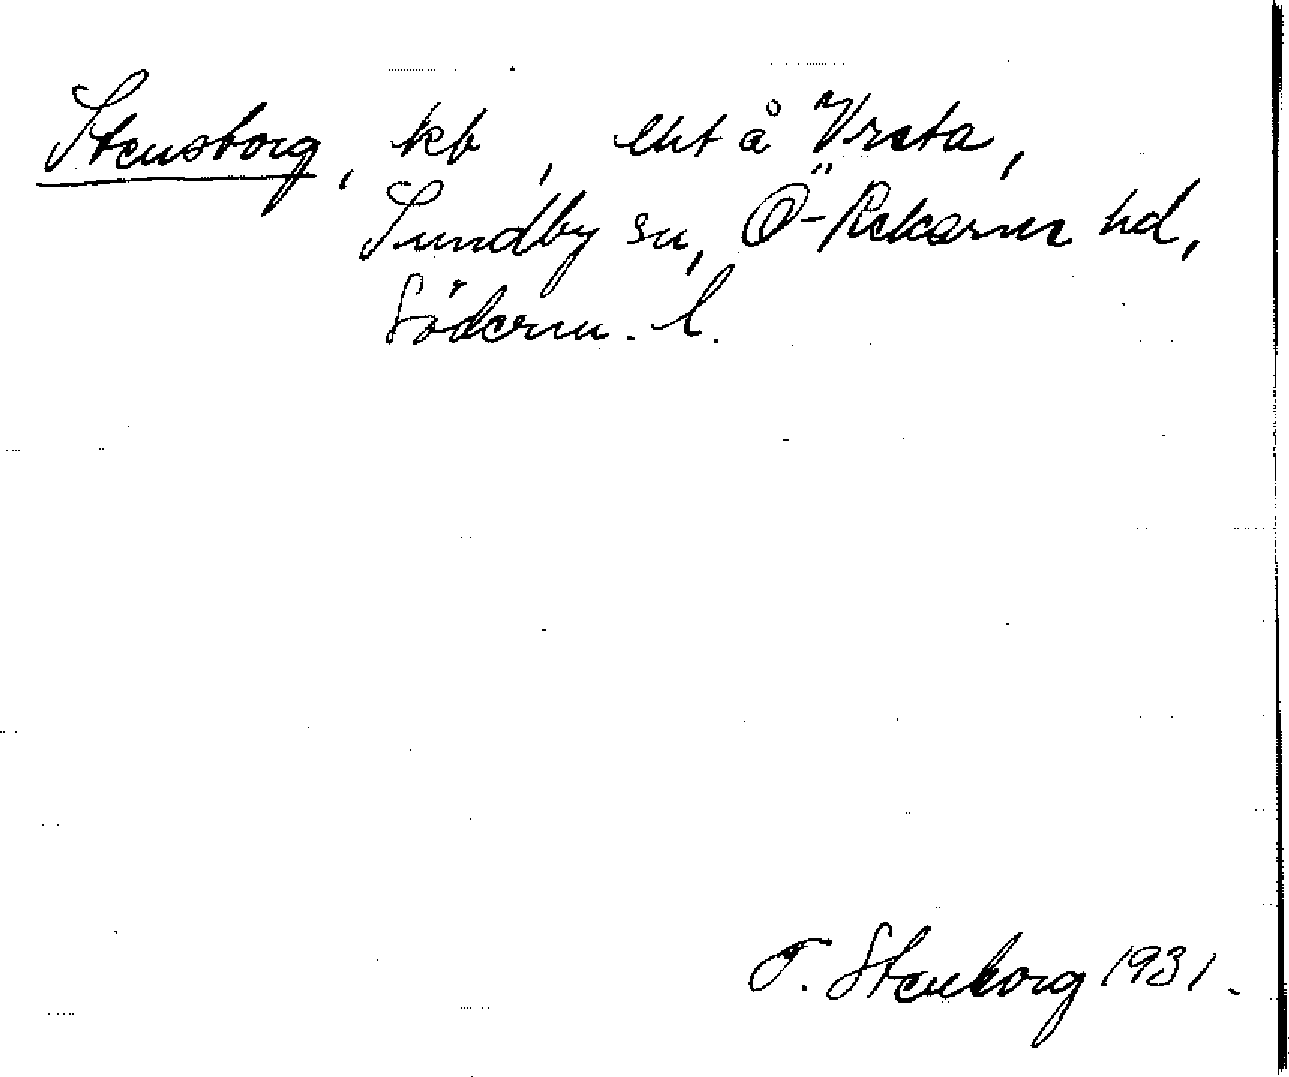 Stensborg, kb, lht å Vreta,
Sundby sn, Ö-Rekarne hd,
Söderm. l.
T. Stenborg 1931.